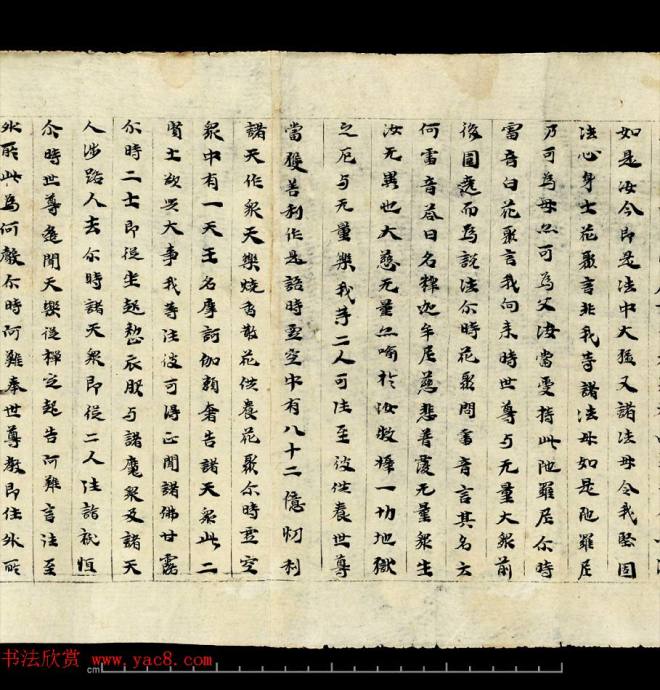 如是汝今即是法中大猛又諸法母令我堅固
法心身士花聚言非我等諸法母如是陁羅尼
乃可為母亦可為父汝當受持此陁羅尼尒時
雷音白花聚言我向来時世尊与无量大衆前
後圍遶而為說法尒時花聚問雷音言其名云
何雷音荅曰名釋迦牟尼慈悲普覆无量衆生
汝无異也大慈无量亦喻於汝救擢一切地獄
之厄与无量樂我等二人可往至彼供養世尊
當獲善利作是語時虛空中有八十二億忉利
諸天作衆天樂燒香散花供養花聚尒時虛空
衆中有一天王名摩訶伽賴奢告諸天衆此二
賢士欲興大事我等往彼可得正聞諸佛甘露
尒時二士即從坐起整衣服与諸魔衆及諸天
人涉路人去尒時諸天衆即從二人往詣祇恒
尒時世尊遥聞天樂從禪定起告阿難言往至
外所此為何聲尒時阿難奉世尊教即往外所
书法欣赏 www.yac8.com
cm